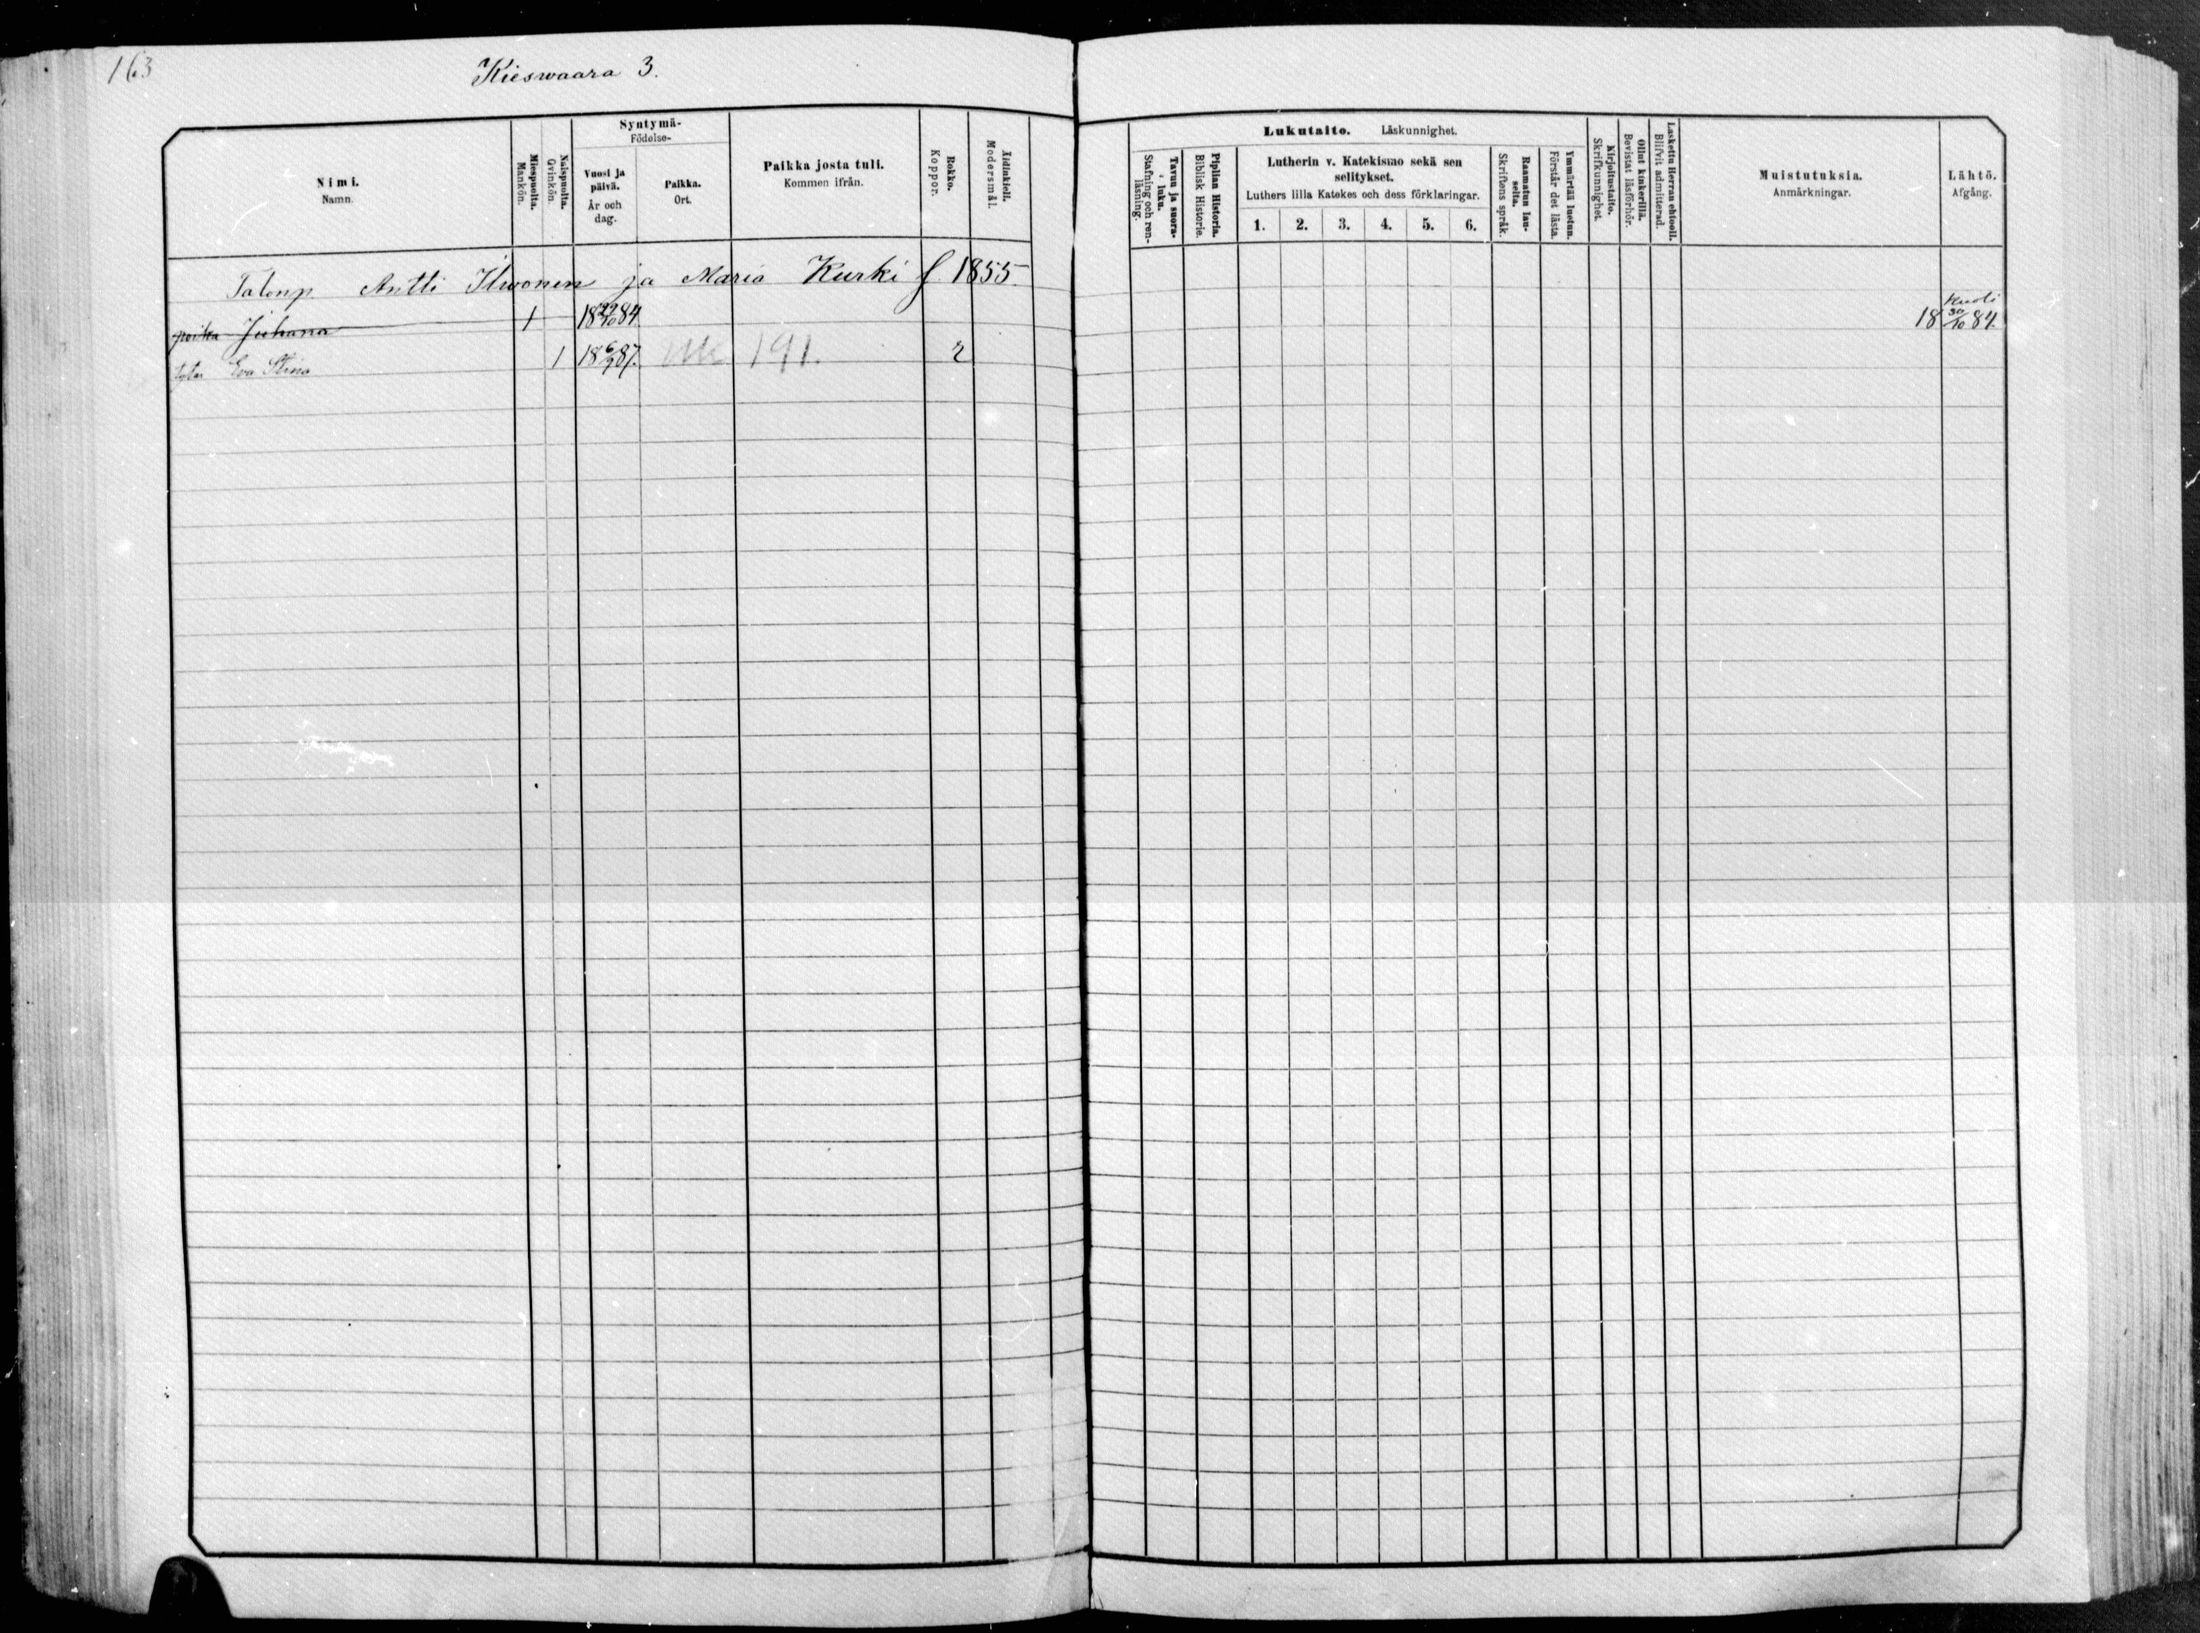 163
Kieswaara 3.
Nimi.
Namn.
Miespuolta.
Mankön.
Naispuolta.
Qvinkön.
Syntymä-
Födelse-
Vuosi ja
päivä.
År och
dag.
Paikka.
Ort.
Paikka josta tuli.
Kommen ifrån.
Rokko.
Koppor.
Äidinkieli.
Modersmål.
Talonp. Antti Ilwonen ja Maria Kurki f. 1855.
poika Juhana 1 18 29/10 84.
tytär Eva Stina 1 18 6/7 87. 191. r
Lukutaito. Läskunnighet.
Tavuu ja suora-
luku.
Stafning och ren-
läsning.
Piplian Historia.
Biblisk Historie.
Lutherin v. Katekismo sekä sen
selitykset.
Luthers lilla Katekes och dess förklaringar.
1. 2. 3. 4. 5. 6.
Raamatun lau-
seita.
Skriftens språk.
Ymmärtää luetun.
Förstår det lästa.
Kirjoitustaito.
Skrifkunnighet.
Ollut kinkerillä.
Bevistat läsförhör.
Laskettu Herran ehtooll.
Blifvit admitterad.
Muistutuksia.
Anmärkningar.
Lähtö.
Afgång.
Kuoli
18 30/10 84.